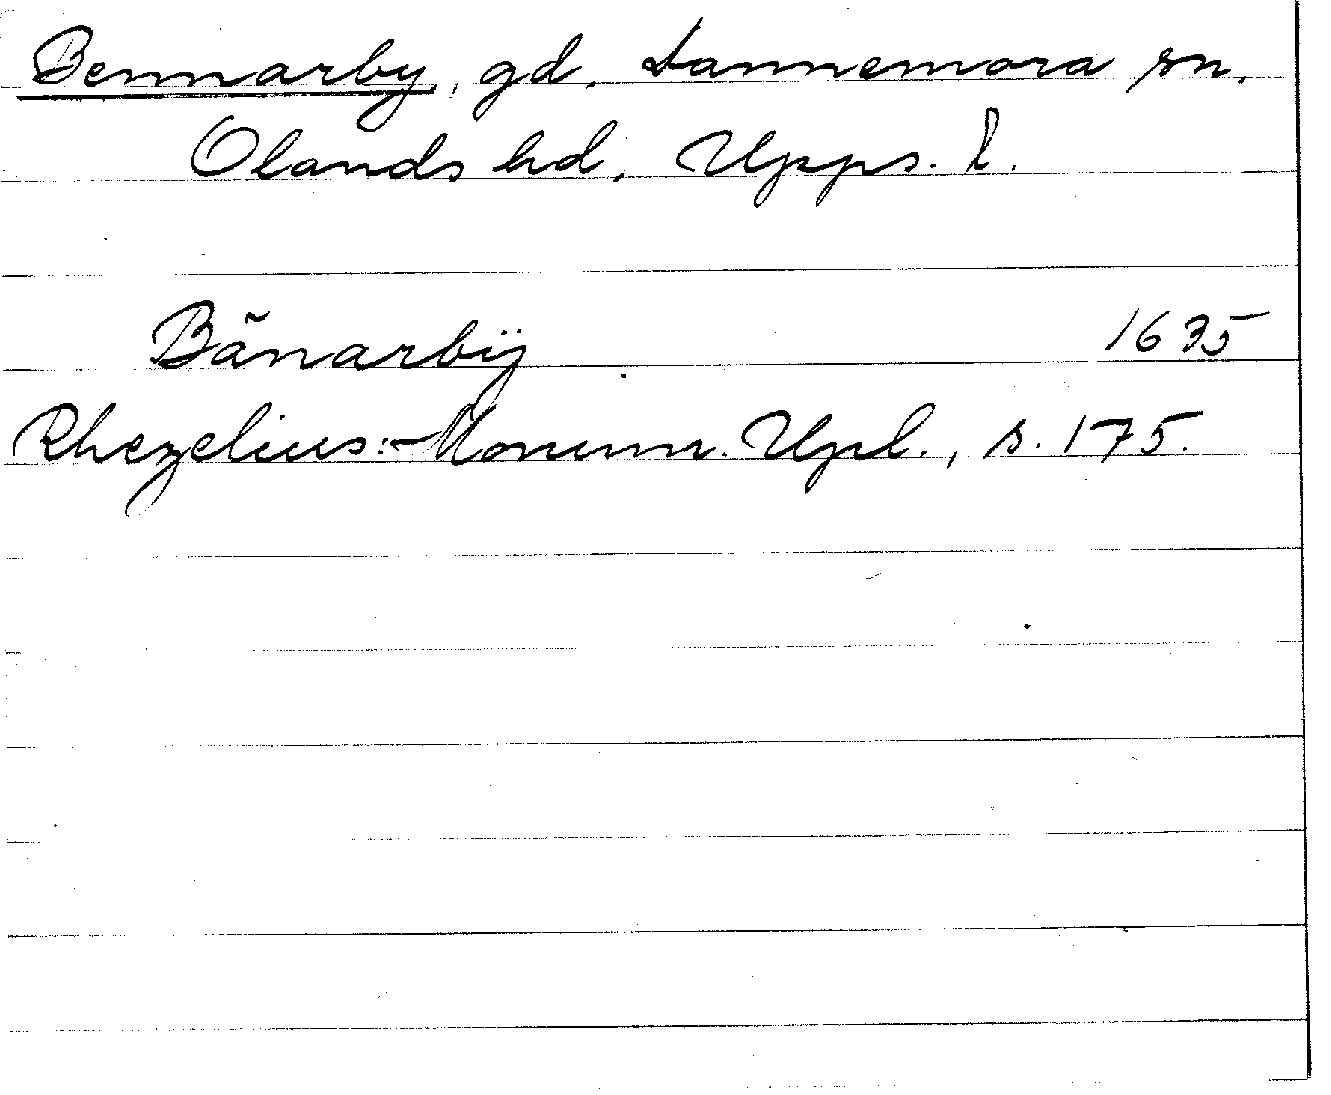 Bennarby, gd, Dannemora sn,
Olands hd, Upps. l.
Bãnarbÿ 1635
Rhezelius: Monum. Upl., s. 175.